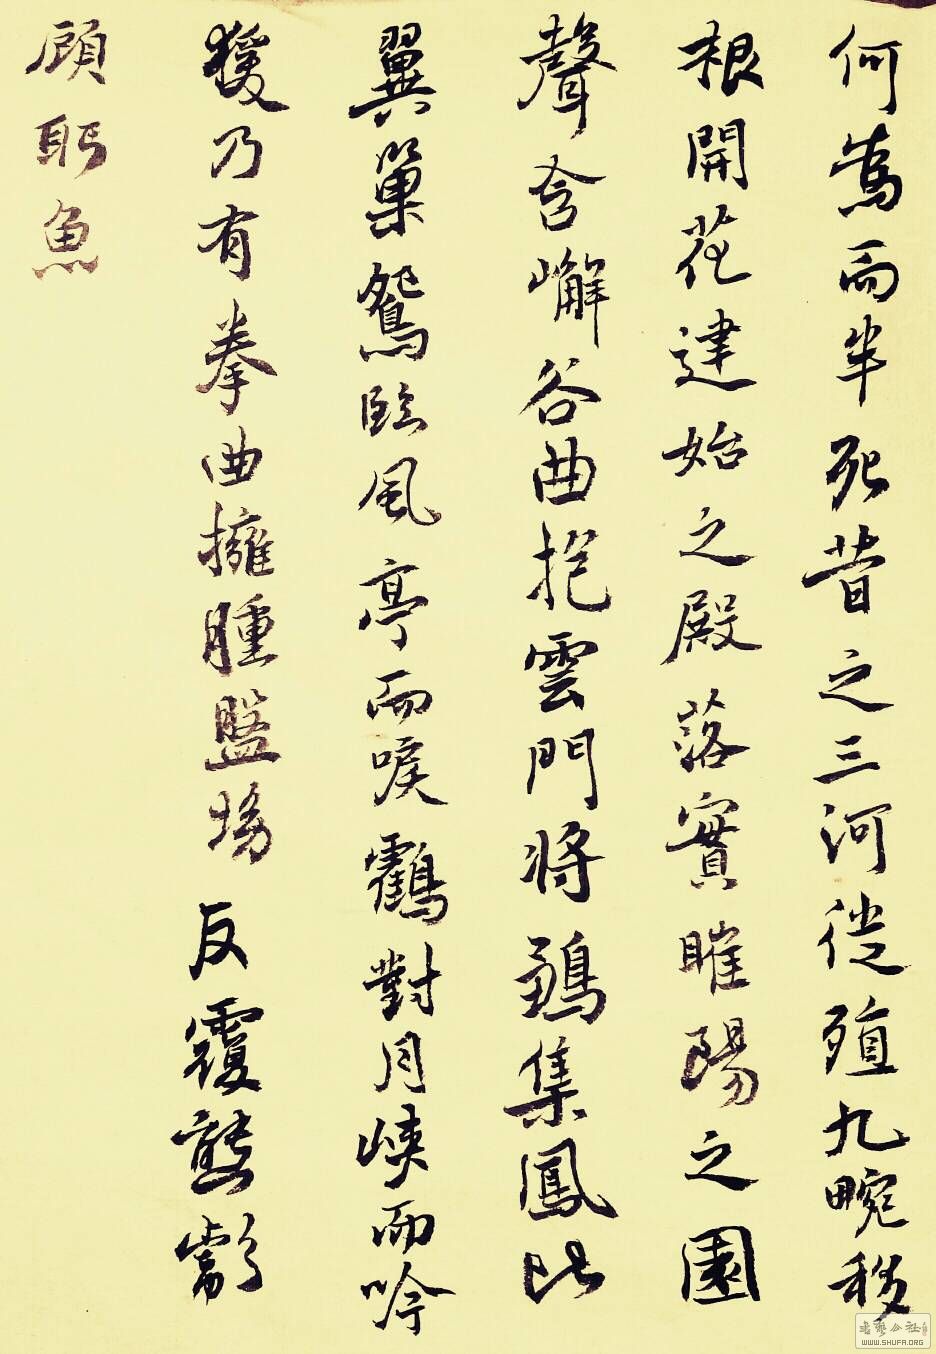 何為而半死昔之三河徙殖九畹移
根開花建始之殿落實睢陽之園
聲含嶰谷曲抱雲門將鶵集鳳比
翼巢鴛臨風亭而唳鶴對月峽而吟
猨乃有拳曲擁腫盤坳反覆熊彪
顧盼魚
書藝公社
WWW.SHUFA.ORG